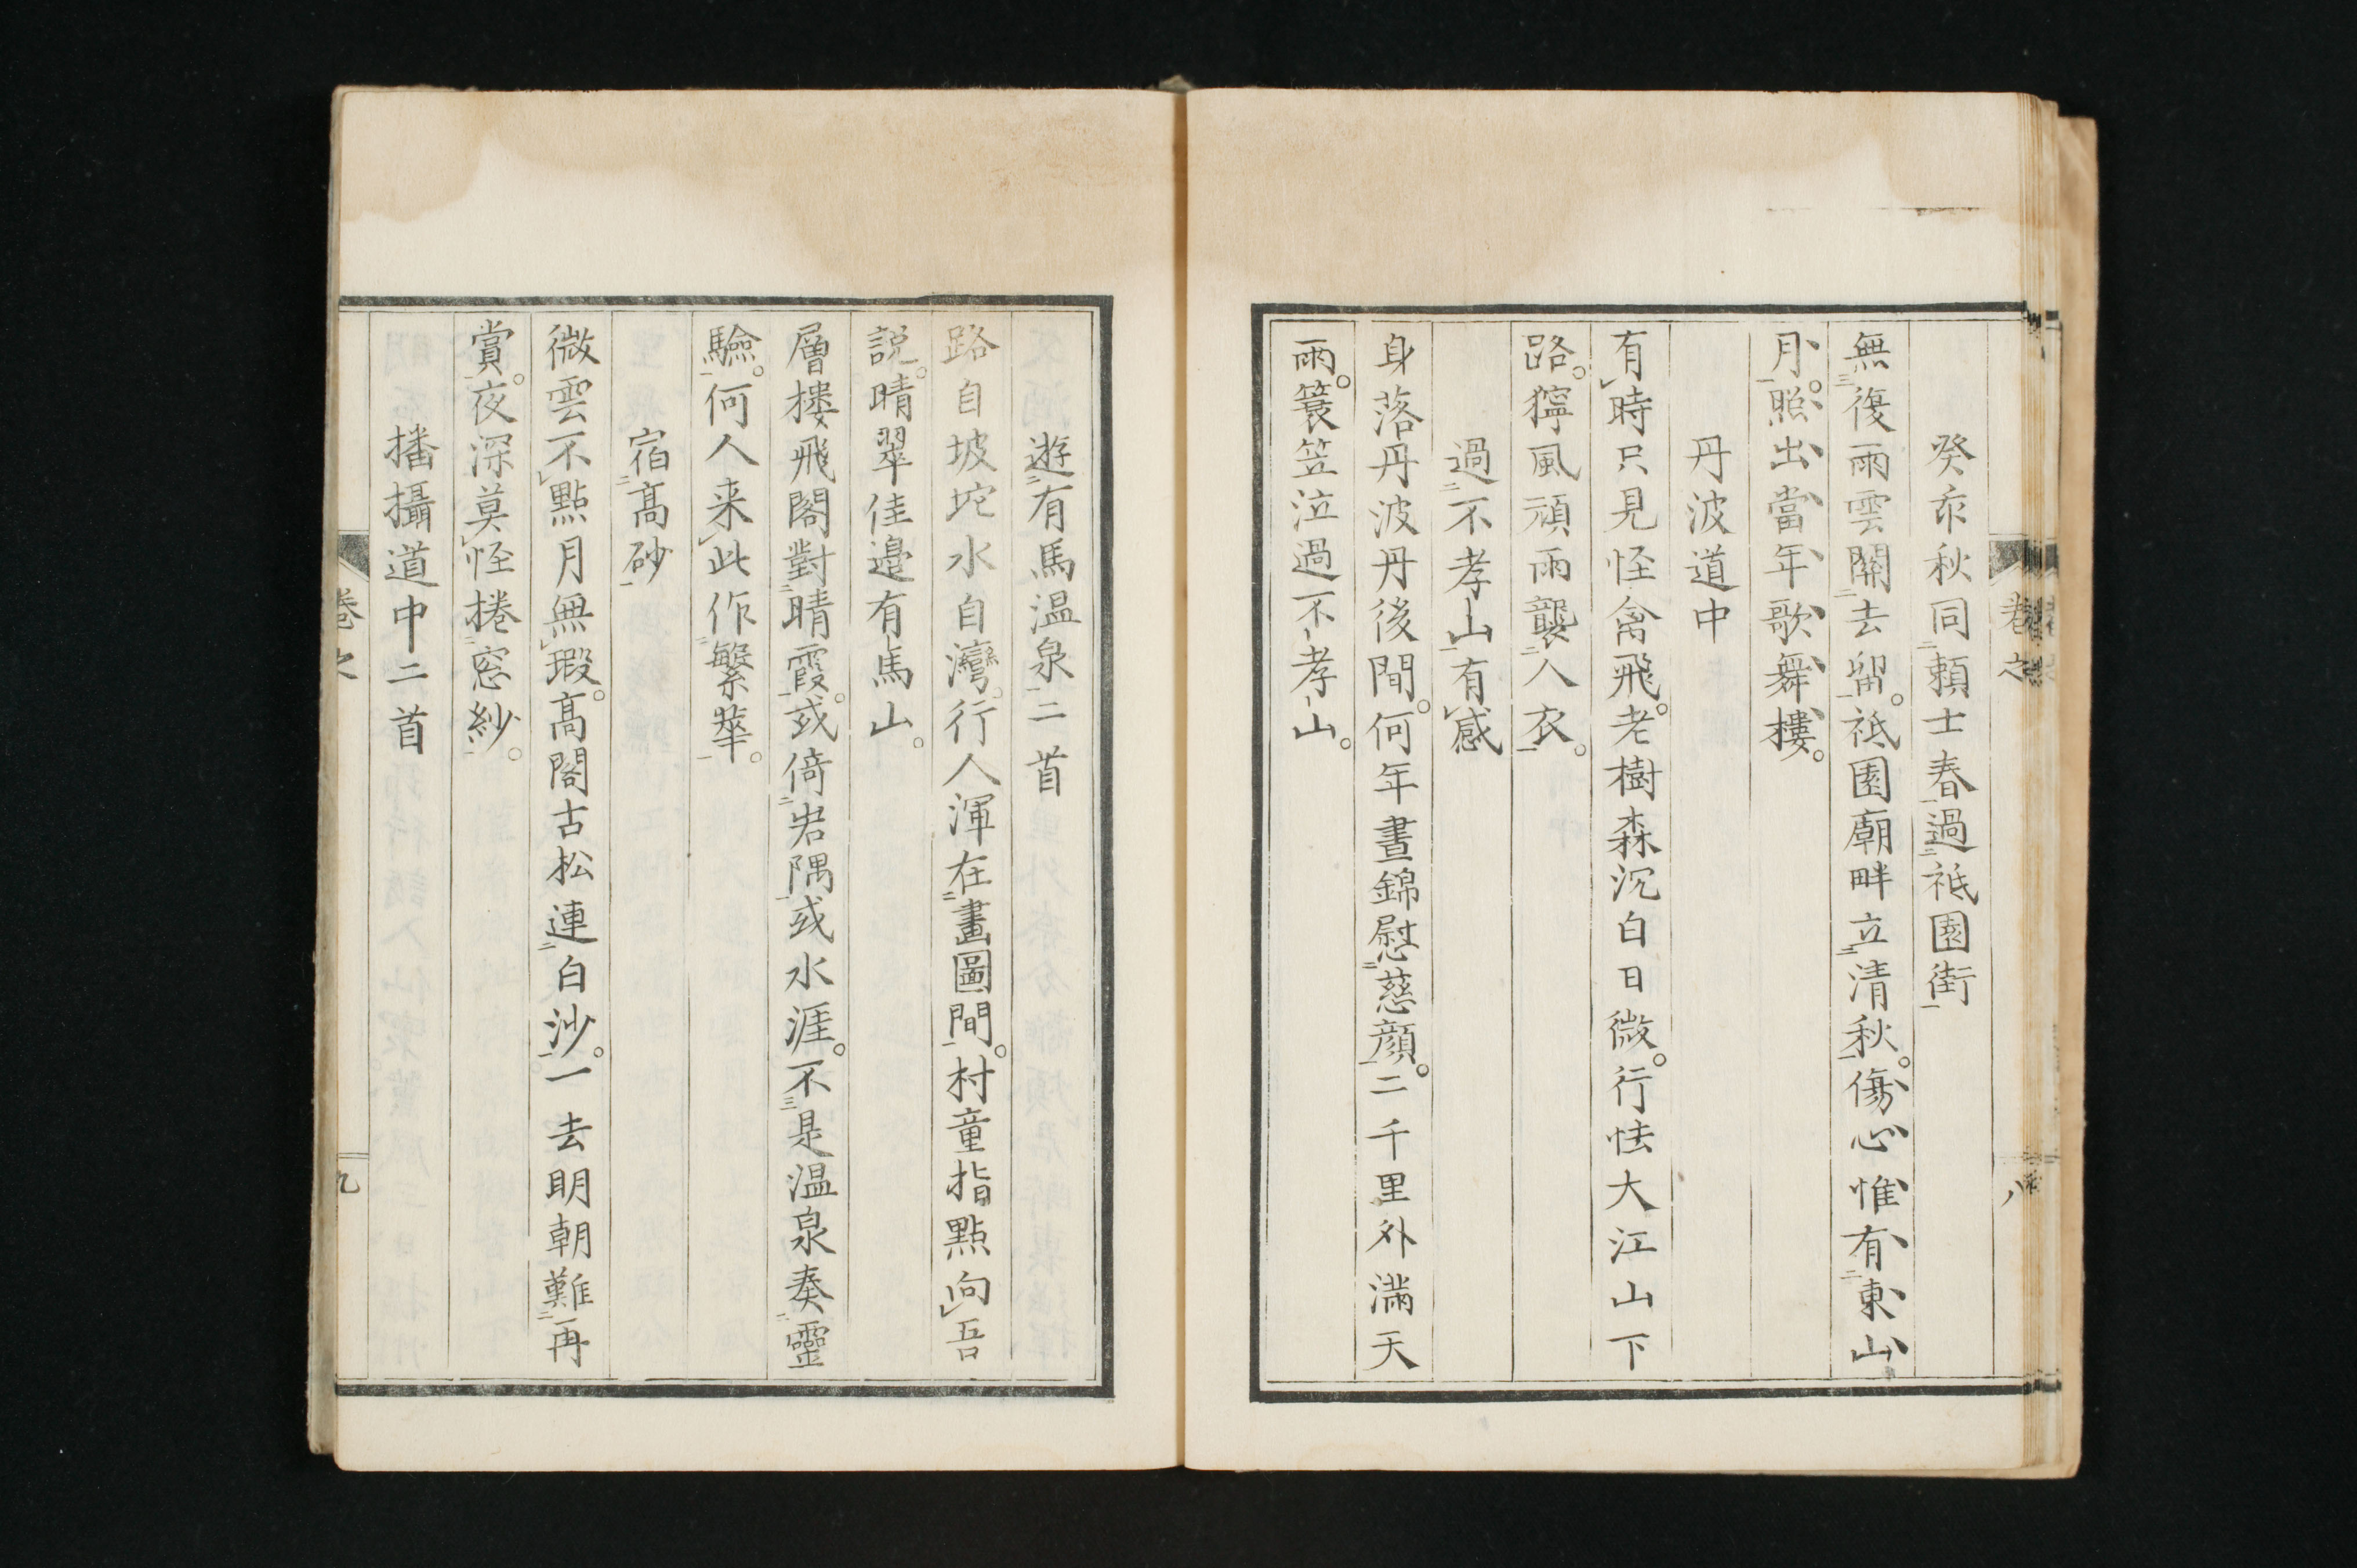 癸亥秋同頼士春過祗園街
無復雨雲關去留。祗園廟畔立清秋。傷心惟有東山
月。照出當年歌舞樓。
丹波道中
有時只見怪禽飛。老樹森沉白日微。行怯大江山下
路。獰風頑雨襲人衣。
過不孝山有感
身落丹波丹後間。何年晝錦慰慈顔。二千里外滿天
雨。簑笠泣過不孝山。
卷之
八
遊有馬温泉二首
路自坡坨水自灣。行人渾在畫圖間。村童指點向吾
説。晴翠佳邊有馬山。
層樓飛閣對晴霞。或倚岩隅或水涯。不是温泉奏靈
驗。何人来此作繁華。
宿高砂
微雲不點月無瑕。高閣古松連白沙。一去明朝難再
賞。夜深莫怪捲窓紗。
播攝道中二首
卷之
九